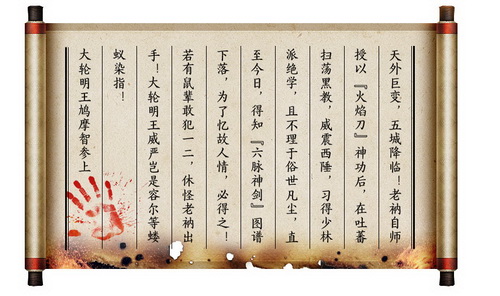 天外巨变，五城降临！老衲自师
授以『火焰刀』神功后，在吐蕃
扫荡黑教，威震西陲，习得少林
派绝学，且不理于俗世凡尘，直
至今日，得知『六脉神剑』图谱
下落，为了忆故人情，必得之！
若有鼠辈敢犯一二，休怪老衲出
手！大轮明王威严岂是容尔等蝼
蚁染指！
大轮明王鸠摩智参上